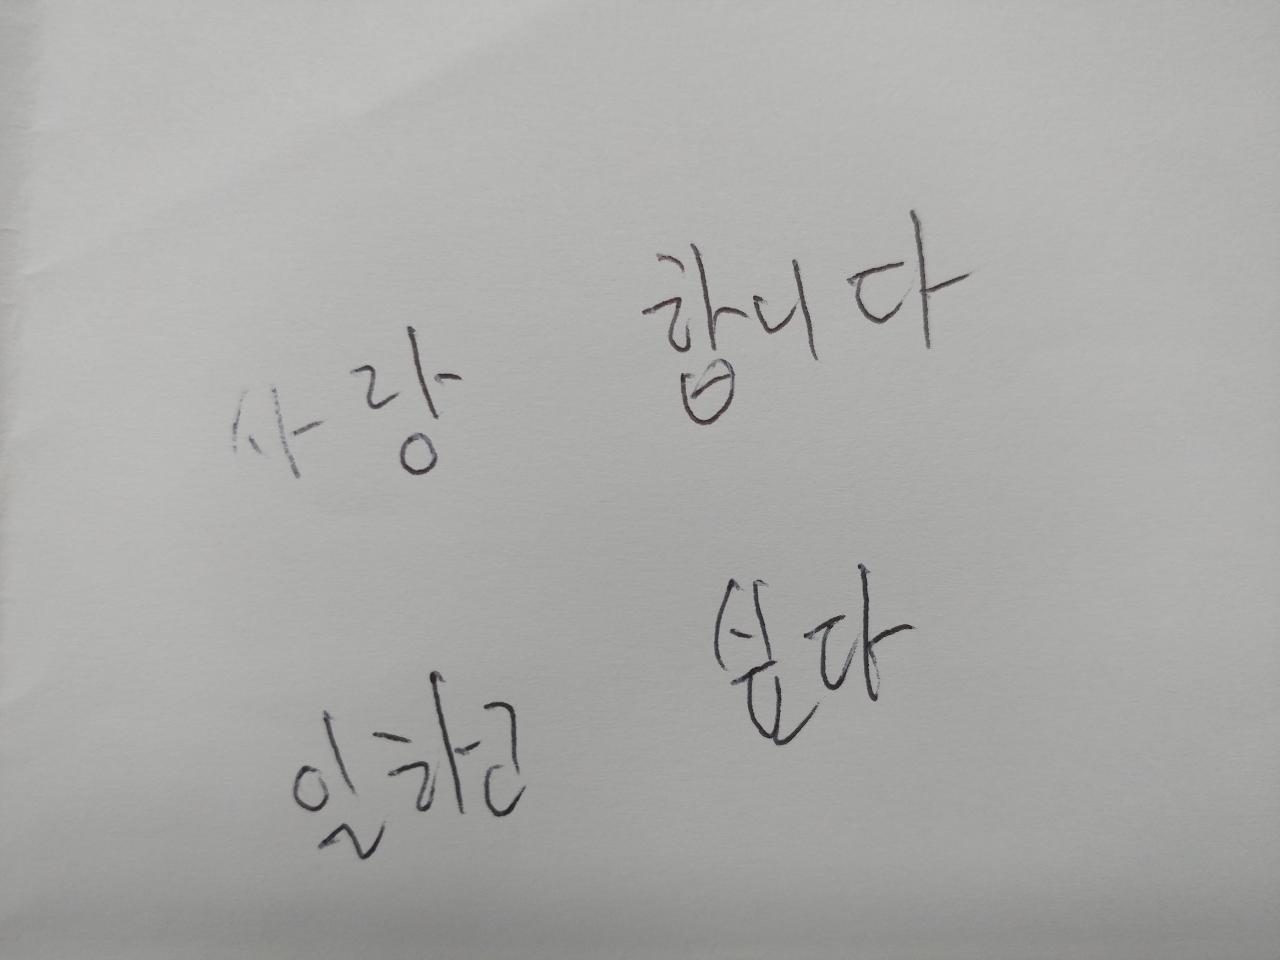 사랑 합니다
일하고 싶다